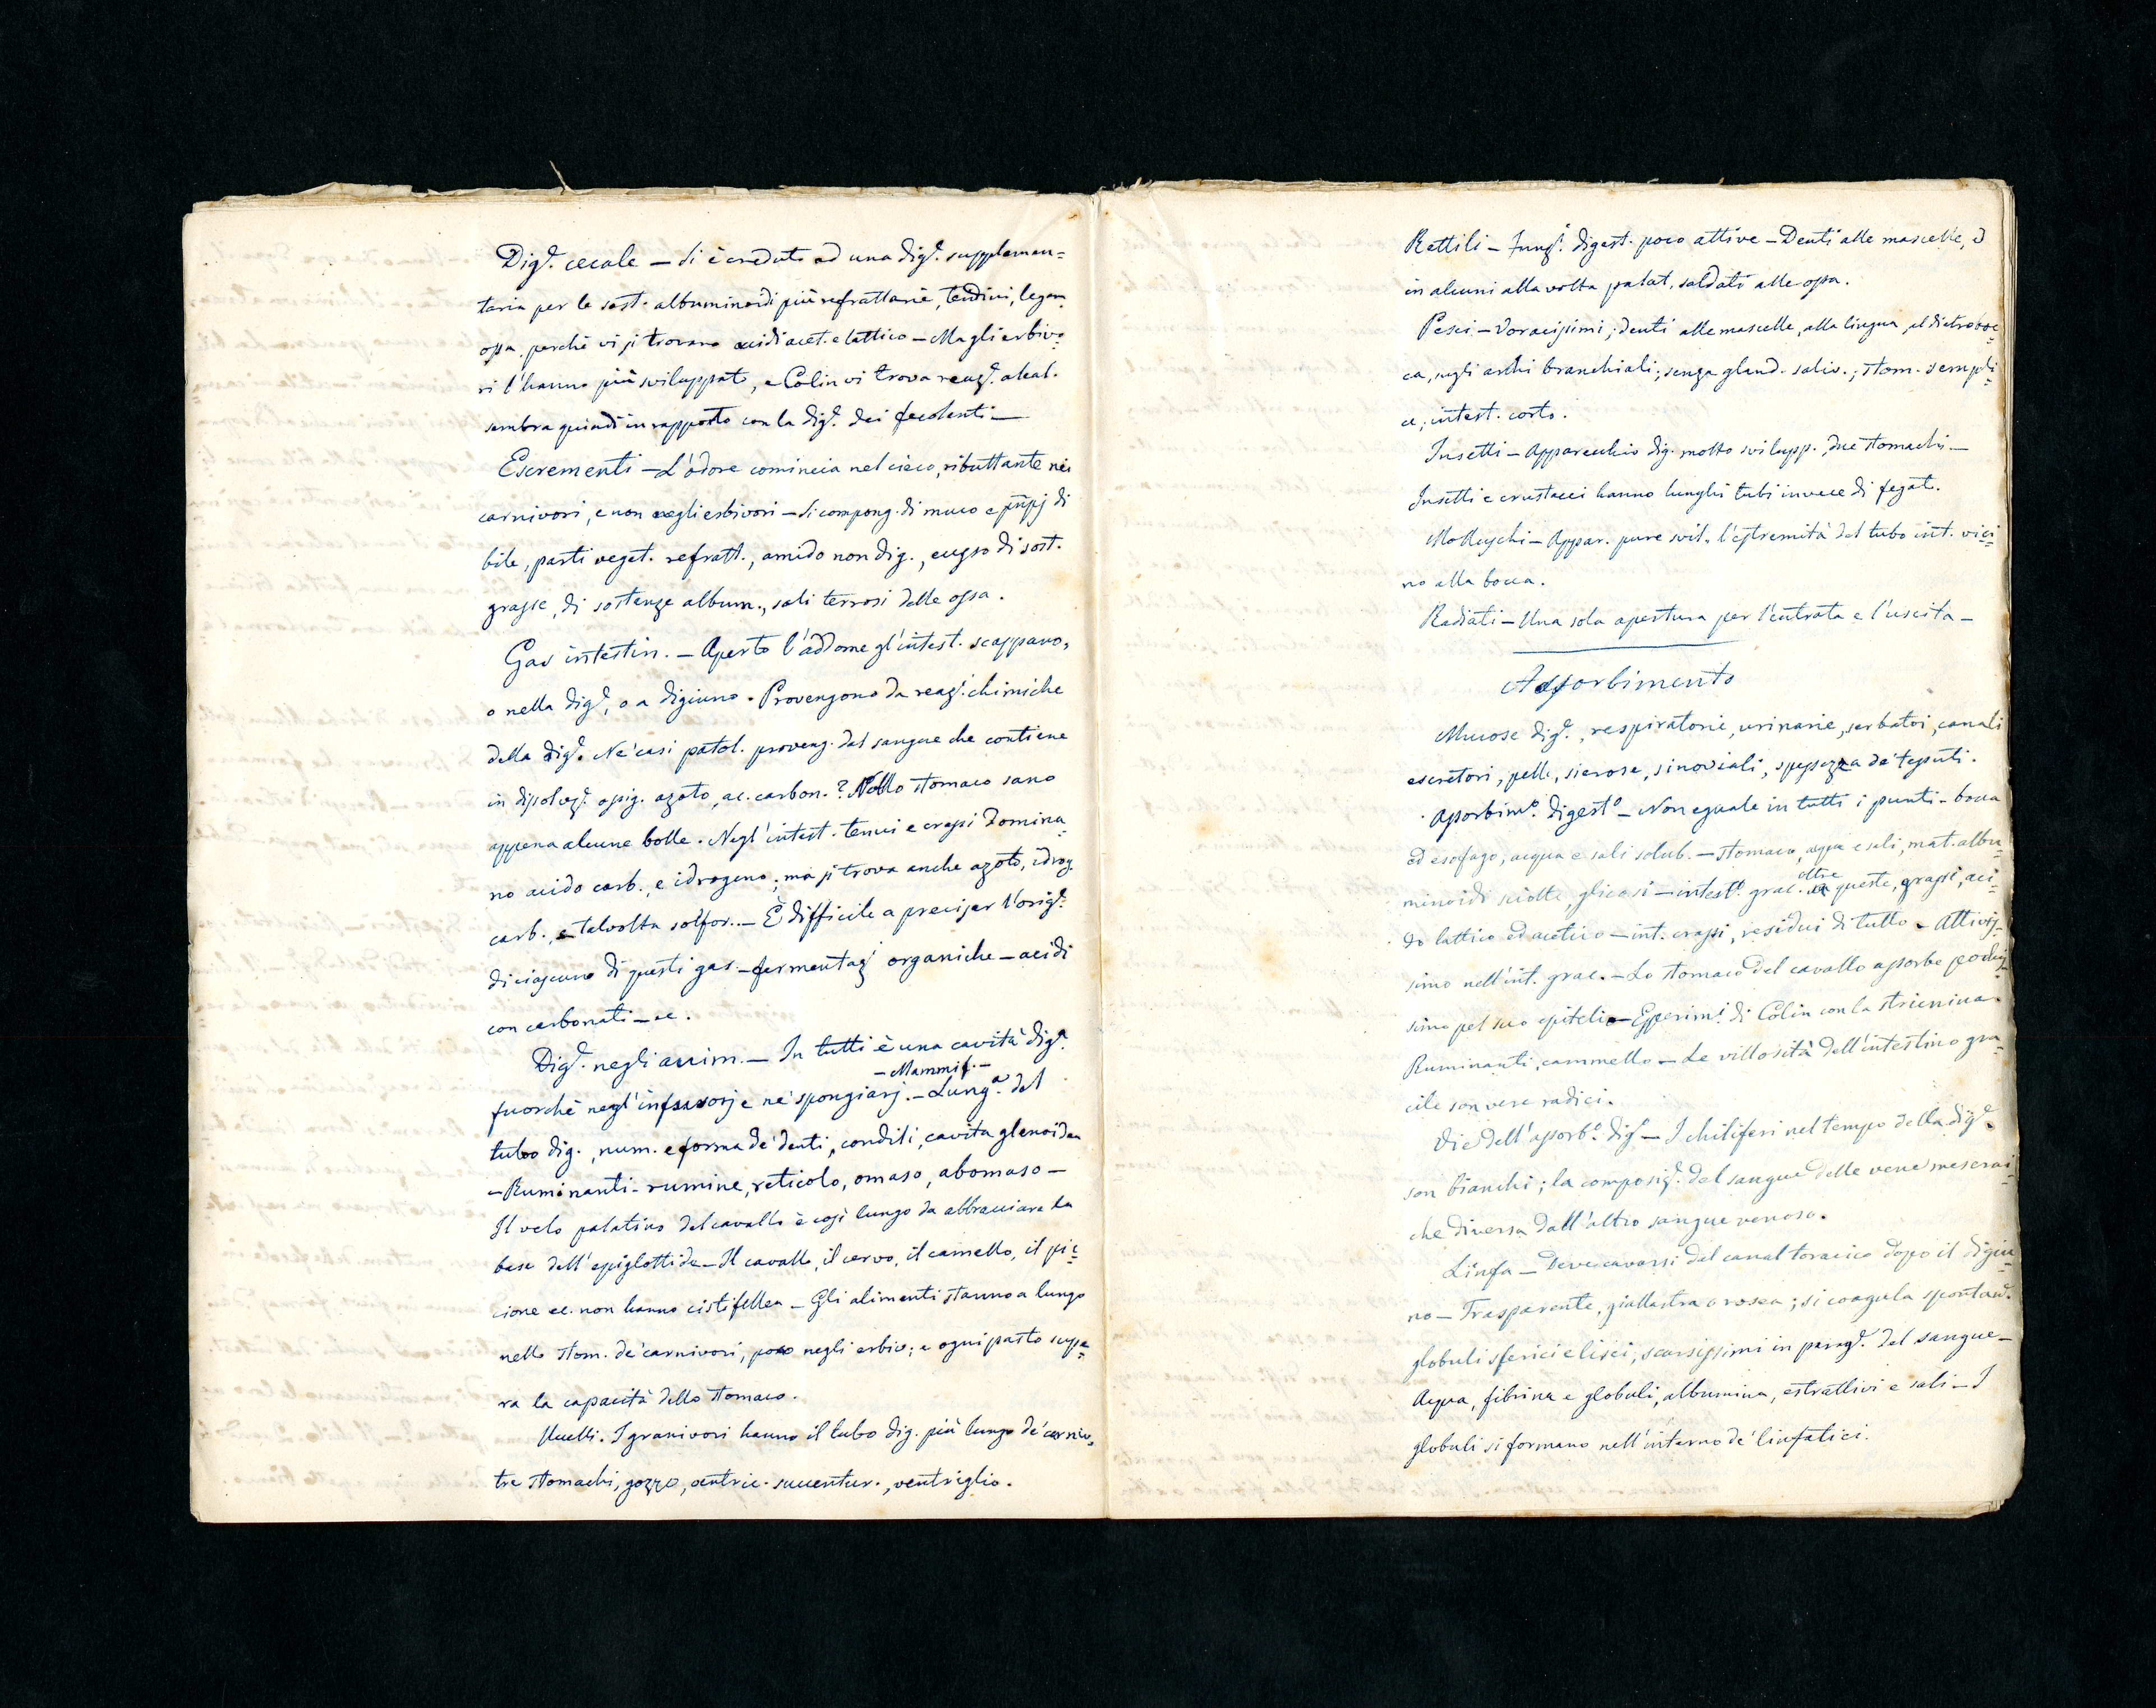 Dig.e cecale — Si è creduto ad una dig.e supplemen=
taria per le sost. albuminoidi più refrattarie, tendini, legam.
ossa. perchè vi si trovano acidi acet. e lattico — Ma gli erbivo=
ri l'hanno più sviluppato, e Colin vi trova reaz.e alcal.
sembra quindi in rapporto con la dig.e dei feculenti —
Escrementi — L'odore comincia nel cieco, ributtante nei
carnivori, e non negli erbivori — Si compong. di muco e di
bile, parti veget. refratt., amido non dig., di sost.
grasse, di sostanze album., sali terrosi delle ossa.
Gas intestin. — Aperto l'addome gl'intest. scappano,
o nella dig.e, o a digiuno. Provengono da reaz.i chimiche
della dig.e Ne' casi patol. proveng. dal sangue che contiene
in dissoluz.e ossig. azoto, ac. carbon.? Nello stomaco sano
appena alcune bolle. Negl'intest. tenui e crassi domina=
no acido carb., e idrogeno; ma si trova anche azoto, idrog.
carb., e talvolta solfor. — È difficile a precisar l'orig.e
di ciascuno di questi gas — fermentaz.i organiche — acidi
con carbonati — ec.
Dig.e negli anim. — In tutti è una cavità dig.a
— Mammif. —
fuorchè negl'infusorj e ne' spongiarj. — Lung.a del
tubo dig., num. e forma de' denti, condili, cavità glenoidea
— Ruminanti — rumine, reticolo, omaso, abomaso —
Il velo palatino del cavallo è così lungo da abbracciare la
base dell'epiglottide — Il cavallo, il cervo, il camello, il pic=
cione ec. non hanno cistifellea — Gli alimenti stanno a lungo
nello stom. de' carnivori, poco negli erbiv.; e ogni pasto supe=
ra la capacità dello stomaco.
Uccelli. I granivori hanno il tubo dig. più lungo de' carniv.,
tre stomachi, gozzo, ventric. succentur., ventriglio.
Rettili — Funz.i digest. poco attive — Denti alle mascelle, ed
in alcuni alla volta palat. saldati alle ossa.
Pesci — Voracissimi; denti alle mascelle, alla lingua, al dietroboc=
ca, agli archi branchiali; senza gland. saliv.; stom. sempli=
ce; intest. corto.
Insetti — Apparecchio dig. molto svilupp. due stomachi —
Insetti e crustacei hanno lunghi tubi invece di fegato.
Molluschi — Appar. pure svil. l'estremità del tubo int. vici=
no alla bocca.
Radiati — Una sola apertura per l'entrata e l'uscita —
Assorbimento
Mucose dig.e, respiratorie, urinarie, serbatoi, canali
escretori, pelle, sierose, sinoviali, spessezza de' tessuti.
Assorbim.o digest.o — Non eguale in tutti i punti — bocca
ed esofago, acqua e sali solub. — stomaco, acqua e sali, mat. albu=
minoidi sciolte, glicosi — intest.o grac. oltre queste, grassi, aci=
do lattico ed acetico — int. crassi, residui di tutto — Attivis=
simo nell'int. grac. — Lo stomaco del cavallo assorbe pochis=
simo pel suo epitelio — Esperim.i di Colin con la stricnina.
Ruminanti, cammello — Le villosità dell'intestino gra=
cile son vere radici.
Vie dell'assorb.o dig.o — I chiliferi nel tempo della dig.e
son bianchi; la composiz.e del sangue delle vene meserai=
che diversa dall'altro sangue venoso.
Linfa — Deve cavarsi dal canal toracico dopo il digiu=
no — Trasparente, giallastra o rosea; si coagula spontan.e
globuli sferici e lisci, scarsissimi in parag.e del sangue —
Acqua, fibrina e globuli, albumina, estrattivi e sali — I
globuli si formano nell'interno de' linfatici.